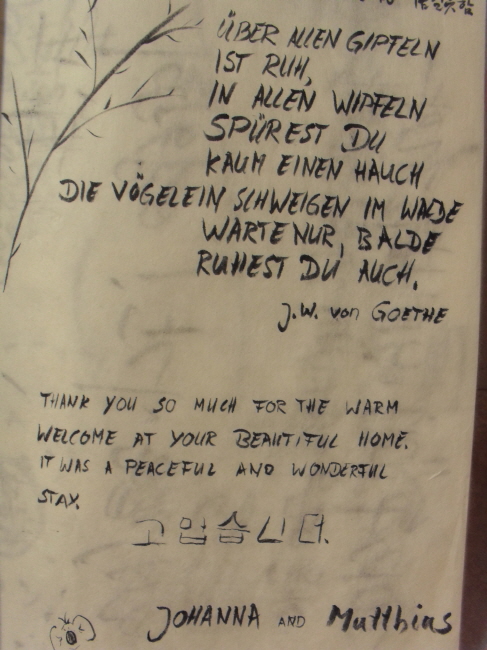 ÜBER ALLEN GIPFELN
IST RUH,
IN ALLEN WIPFELN
SPÜREST DU
KAUM EINEN HAUCH
DIE VÖGELEIN SCHWEIGEN IM WALDE
WARTE NUR, BALDE
RUHEST DU AUCH.
J.W. von GOETHE
THANK YOU SO MUCH FOR THE WARM
WELCOME AT YOUR BEAUTIFUL HOME.
IT WAS A PEACEFUL AND WONDERFUL
STAY.
고맙습니다.
JOHANNA AND Matthias